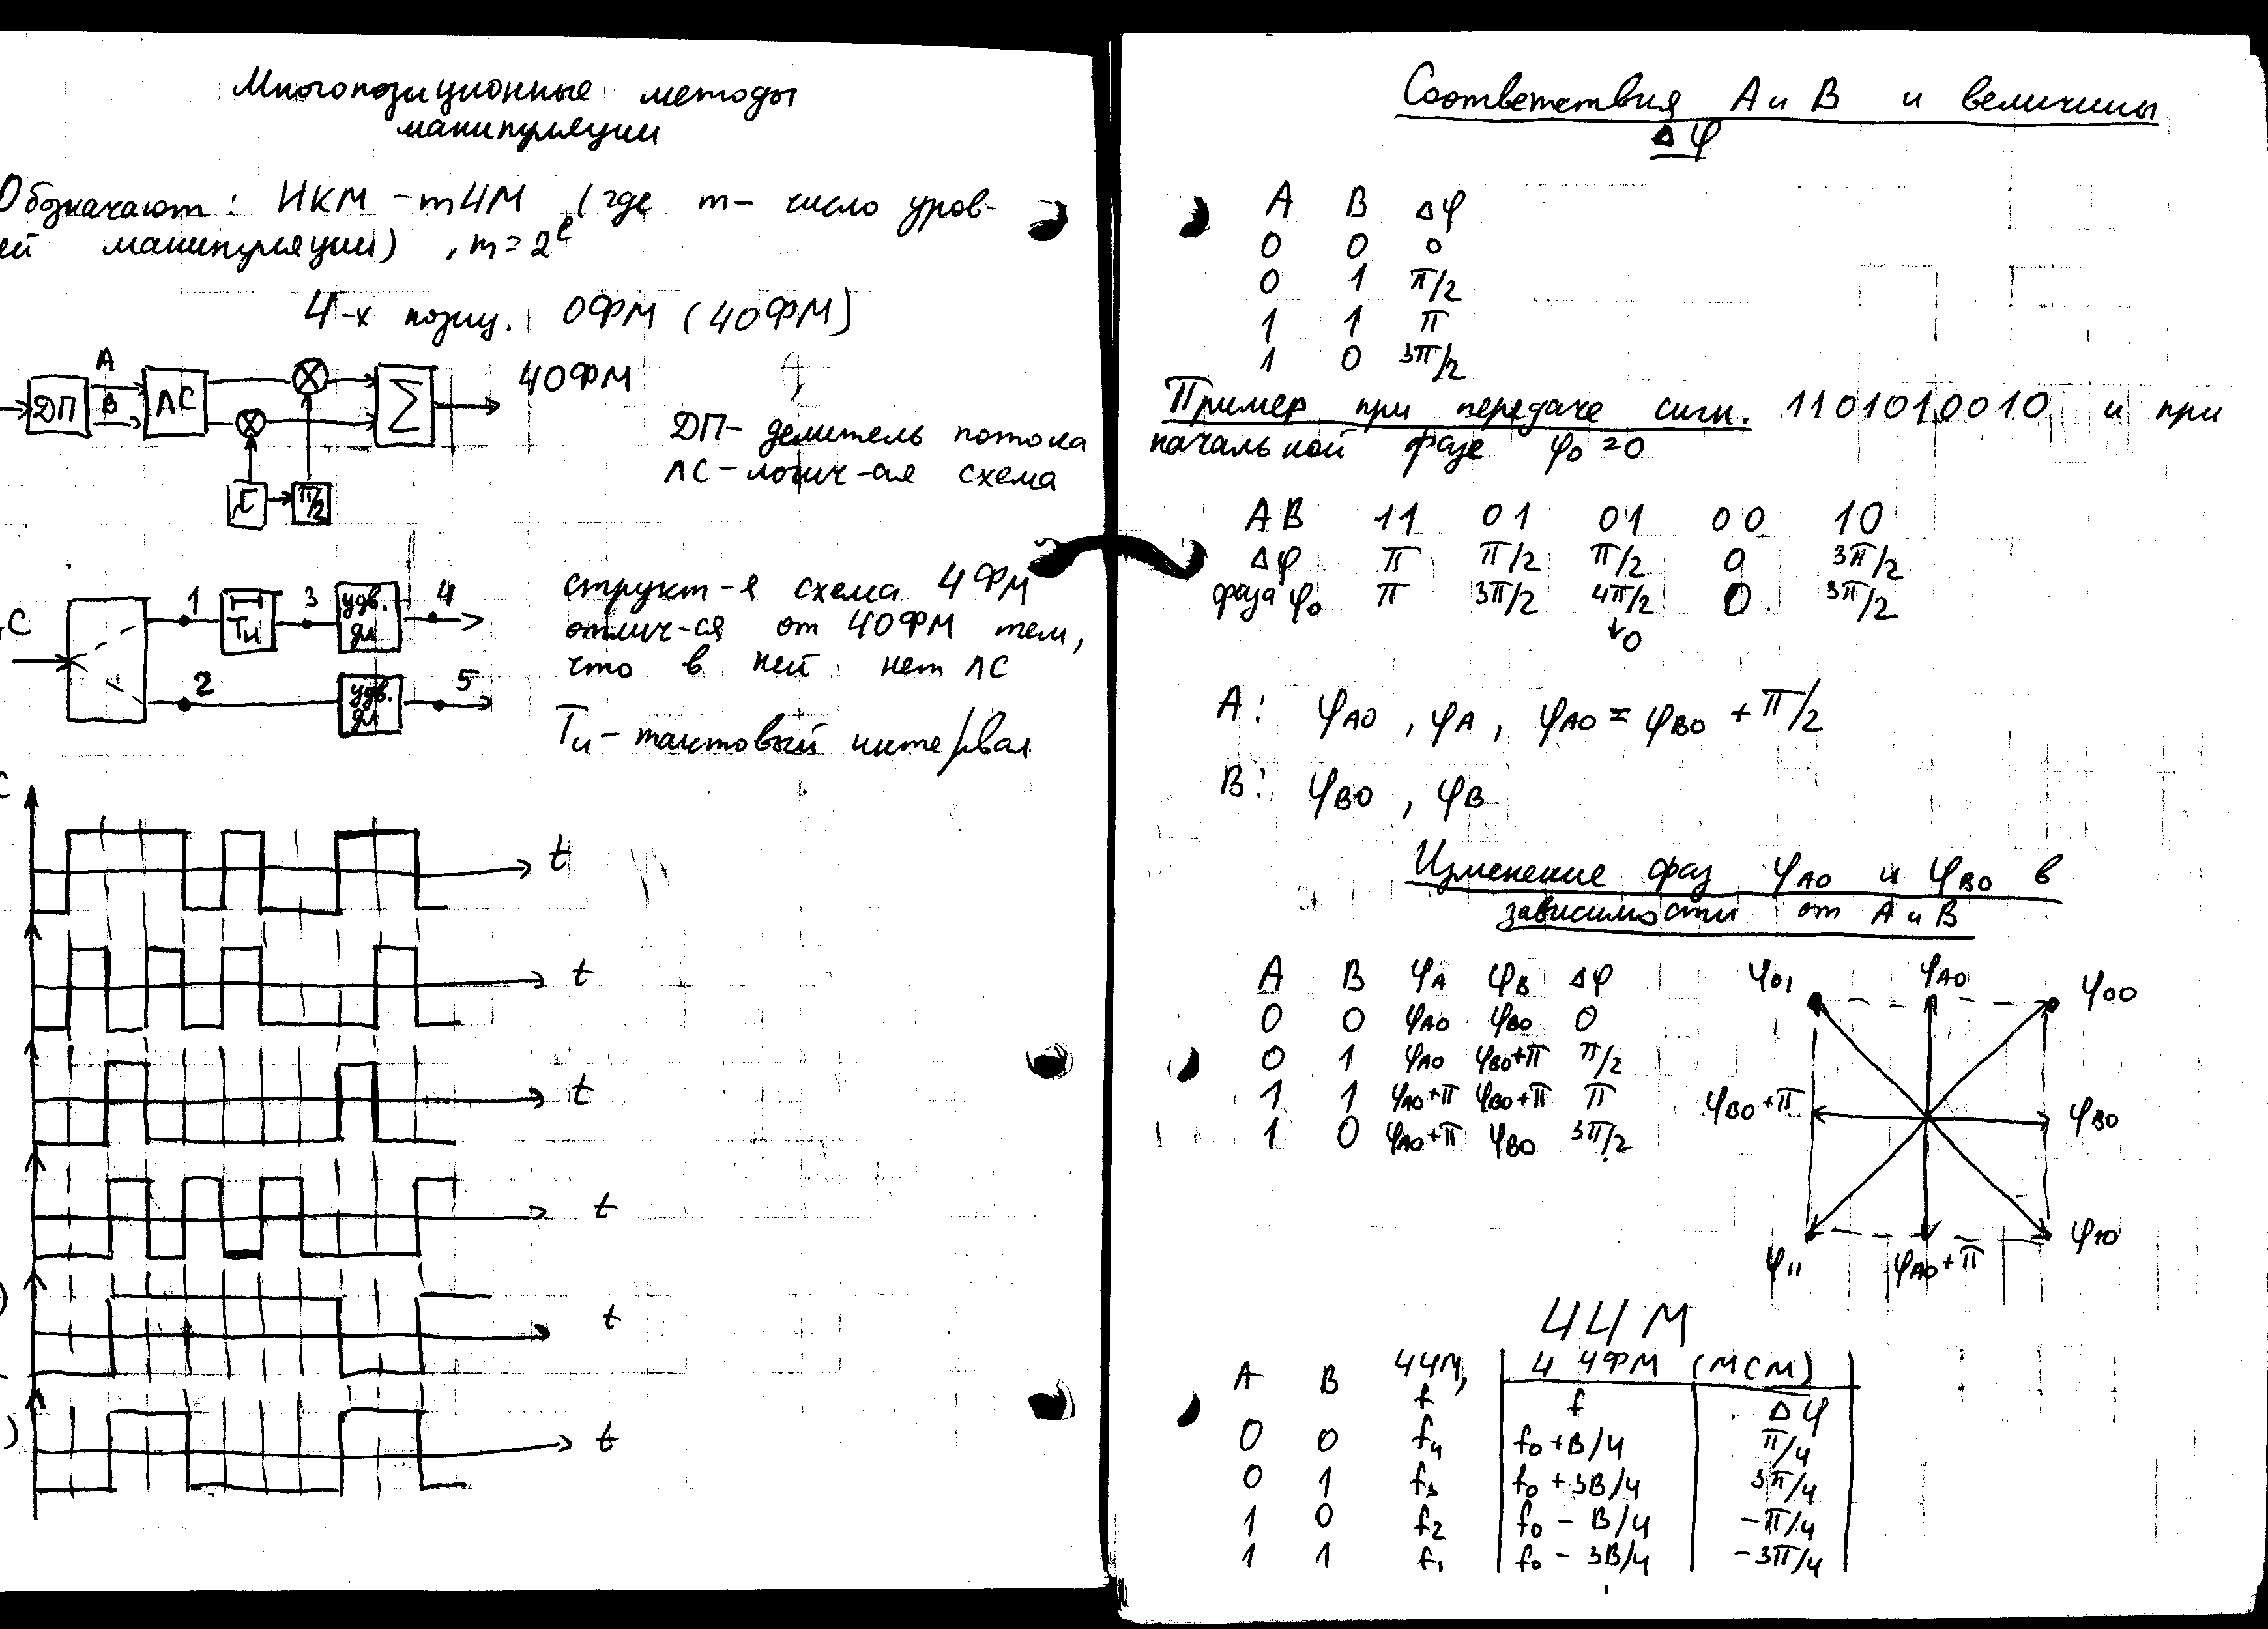 Многопозиционные методы
манипуляции
Обозначают: ИКМ - mЧМ (где m - число уров-
ей манипуляции), m = 2^ℓ
4-х позиц. ОФМ (4ОФМ)
A
B
ДП
ЛС
Σ
4ОФМ
π/2
ДП - делитель потока
ЛС - логич-ая схема
С
1
Tи
3
удв.
дл
4
2
удв.
дл
5
структ-я схема 4ФМ
отлич-ся от 4ОФМ тем,
что в ней нет ЛС
Tи - тактовый интервал
С
t
t
t
t
t
t
Соответствия А и В и величины
Δφ
A B Δφ
0 0 0
0 1 π/2
1 1 π
1 0 3π/2
Пример при передаче сигн. 1101010010 и при
начальной фазе φ0 = 0
AB 11 01 01 00 10
Δφ π π/2 π/2 0 3π/2
фаза φ0 π 3π/2 4π/2 0 3π/2
↓0
A: φA0, φA, φA0 = φB0 + π/2
B: φB0, φB
Изменение фаз φA0 и φB0 в
зависимости от А и В
A B φA φB Δφ
0 0 φA0 φB0 0
0 1 φA0 φB0+π π/2
1 1 φA0+π φB0+π π
1 0 φA0+π φB0 3π/2
φ01 φA0 φ00
φB0+π φB0
φ11 φA0+π φ10
4ЧМ
A B 4ЧМ, f 4ЧФМ (МСМ)
f Δφ
0 0 f4 f0 + B/4 π/4
0 1 f3 f0 + 3B/4 3π/4
1 0 f2 f0 - B/4 -π/4
1 1 f1 f0 - 3B/4 -3π/4